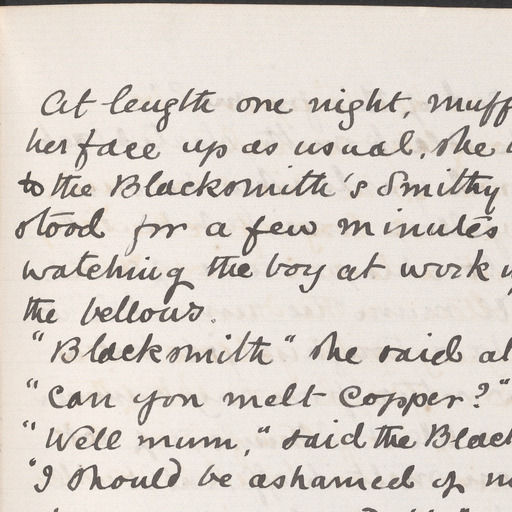 At length one night, muff
her face up as usual, she
to the Blacksmith's Smithy
stood for a few minutes
watching the boy at work
the bellows.
"Blacksmith" she said al
"Can you melt Copper?"
"Well mum," said the Black
"I should be ashamed of m